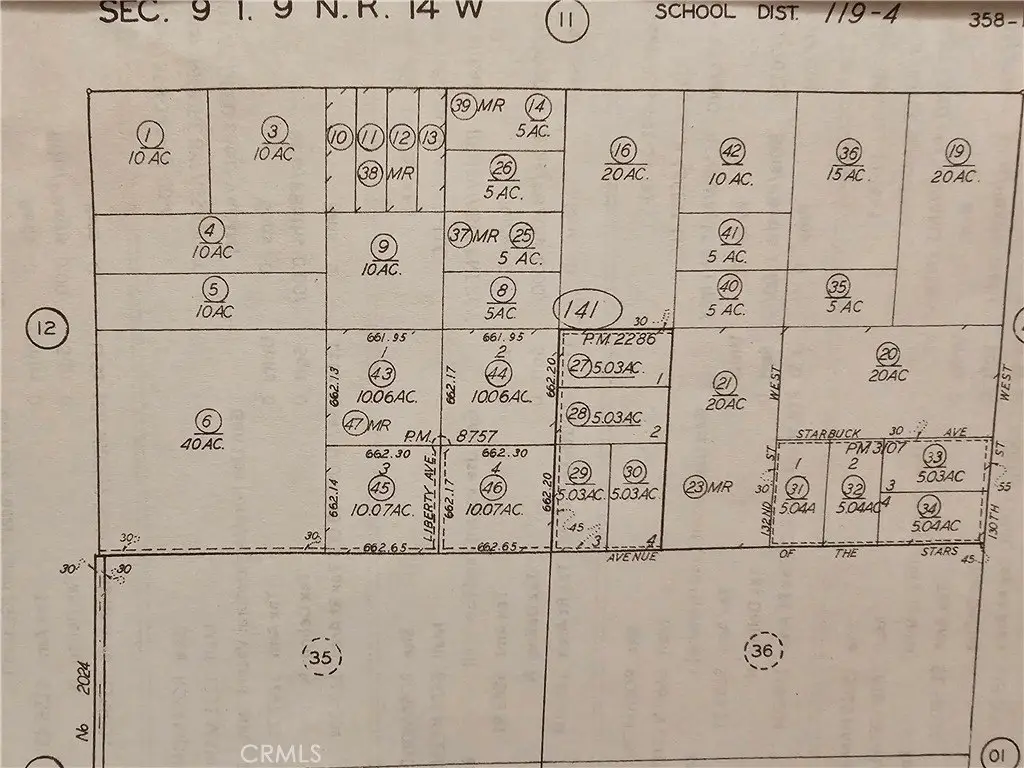 SEC. 9 T. 9 N. R. 14 W
11
SCHOOL DIST. 119-4
358-
1
10 AC
3
10 AC
10
11
12
13
38 MR
39 MR
14
5 AC.
26
5 AC.
16
20 AC.
42
10 AC.
36
15 AC.
19
20 AC.
4
10 AC
9
10 AC.
37 MR
25
5 AC.
41
5 AC.
5
10 AC
8
5 AC.
141
30
40
5 AC.
35
5 AC
12
661.95
661.95
P.M. 2286
6
40 AC.
1
43
10.06 AC.
662.13
662.17
2
44
10.06 AC.
662.20
27 5.03 AC.
1
28 5.03 AC.
2
21
20 AC
WEST
20
20 AC
WEST
47 MR
P.M. 8757
STARBUCK AVE
30
662.30
662.30
3
45
10.07 AC.
662.14
LIBERTY AVE.
662.17
4
46
10.07 AC.
662.20
29
5.03 AC.
30
5.03 AC.
23 MR
132ND ST
30
PM 3107
1
31
5.04 A
2
32
5.04 AC
33
5.03 AC
3
4
34
5.04 AC
130TH ST
55
30
30
662.65
662.65
45
3
4
AVENUE OF THE STARS
45
30
30
35
36
No 2024
CRMLS
01